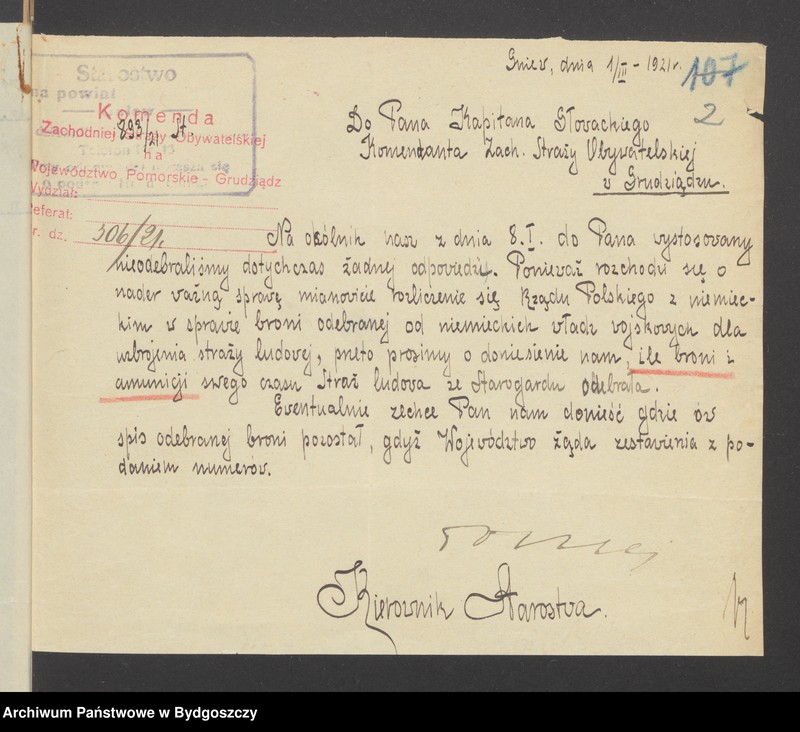 Gniew, dnia 1/III - 1921 r.
107
2
Starostwo
na powiat
Komenda
Zachodniej Straży Obywatelskiej
na
Województwo Pomorskie - Grudziądz
Wydział:
Referat:
r. dz. 306/21.
893/21 St
Do Pana Kapitana Słowackiego
Komendanta Zach. Straży Obywatelskiej
w Grudziądzu.
Na okólnik nasz z dnia 8.I. do Pana wystosowany
nieodebraliśmy dotychczas żadnej odpowiedzi. Ponieważ rozchodzi się o
nader ważną sprawę mianowicie rozliczenie się Rządu Polskiego z niemiec-
kim w sprawie broni odebranej od niemieckich władz wojskowych dla
uzbrojenia straży ludowej, przeto prosimy o doniesienie nam, ile broni i
amunicji swego czasu Straż ludowa ze Starogardu odebrała.
Eventualnie zechce Pan nam donieść gdzie ów
spis odebranej broni pozostał, gdyż Województwo żąda zestawienia z po-
daniem numerów.
Kierownik Starostwa.
Archiwum Państwowe w Bydgoszczy